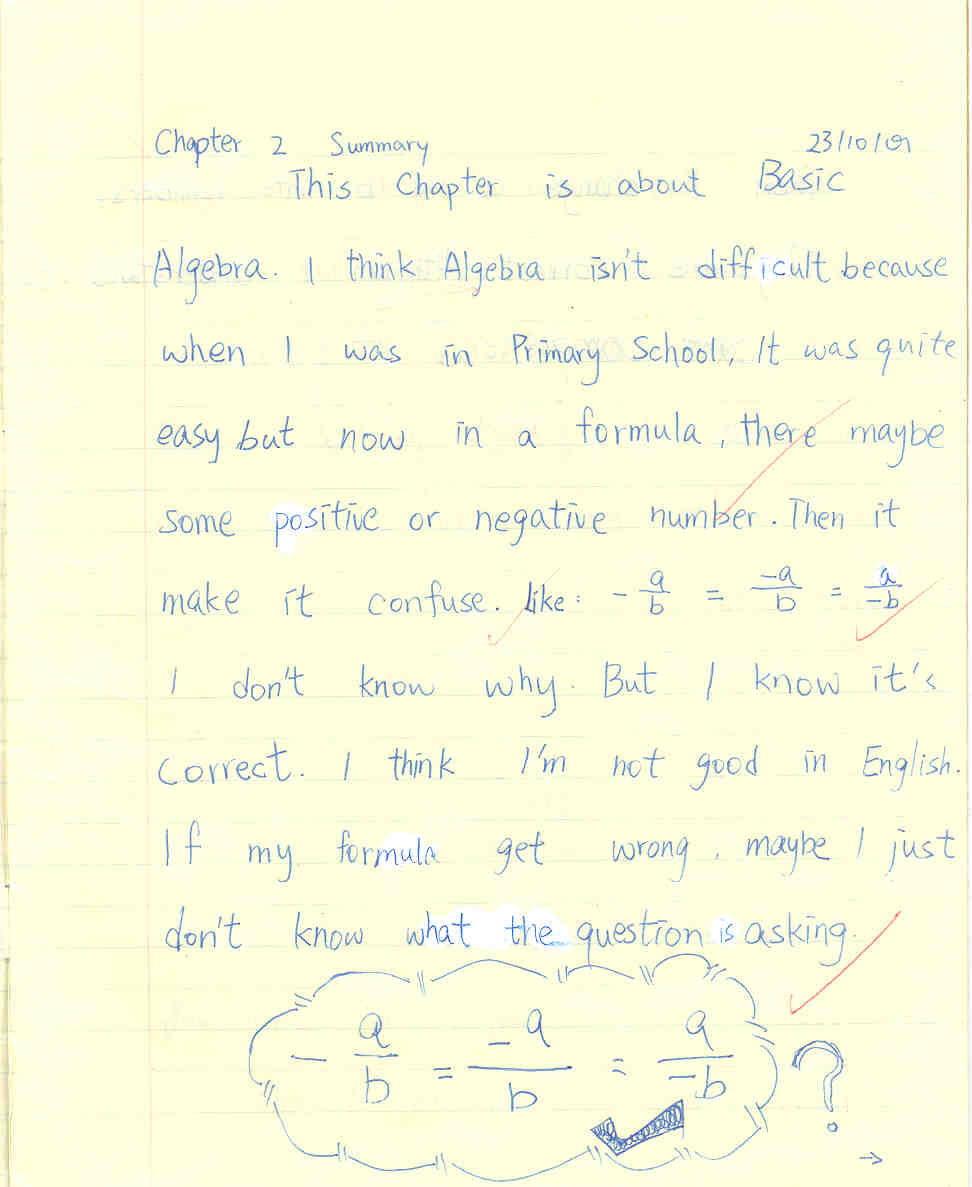 Chapter 2 Summary 23/10/09
This Chapter is about Basic
Algebra. I think Algebra isn't difficult because
when I was in Primary School, It was quite
easy but now in a formula, there maybe
some positive or negative number. Then it
make it confuse. Like: - a/b = -a/b = a/-b
I don't know why. But I know it's
correct. I think I'm not good in English.
If my formula get wrong, maybe I just
don't know what the question is asking.
- a/b = -a/b = a/-b ?
→